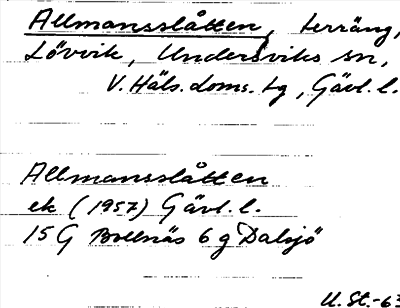 Allmansslåtten, terräng,
Lövvik, Undersviks sn,
V. Häls. doms. tg, Gävl. l.
Allmansslåtten
ek (1957) Gävl. l.
15 G Bollnäs 6 g Dalsjö
U. St. -63